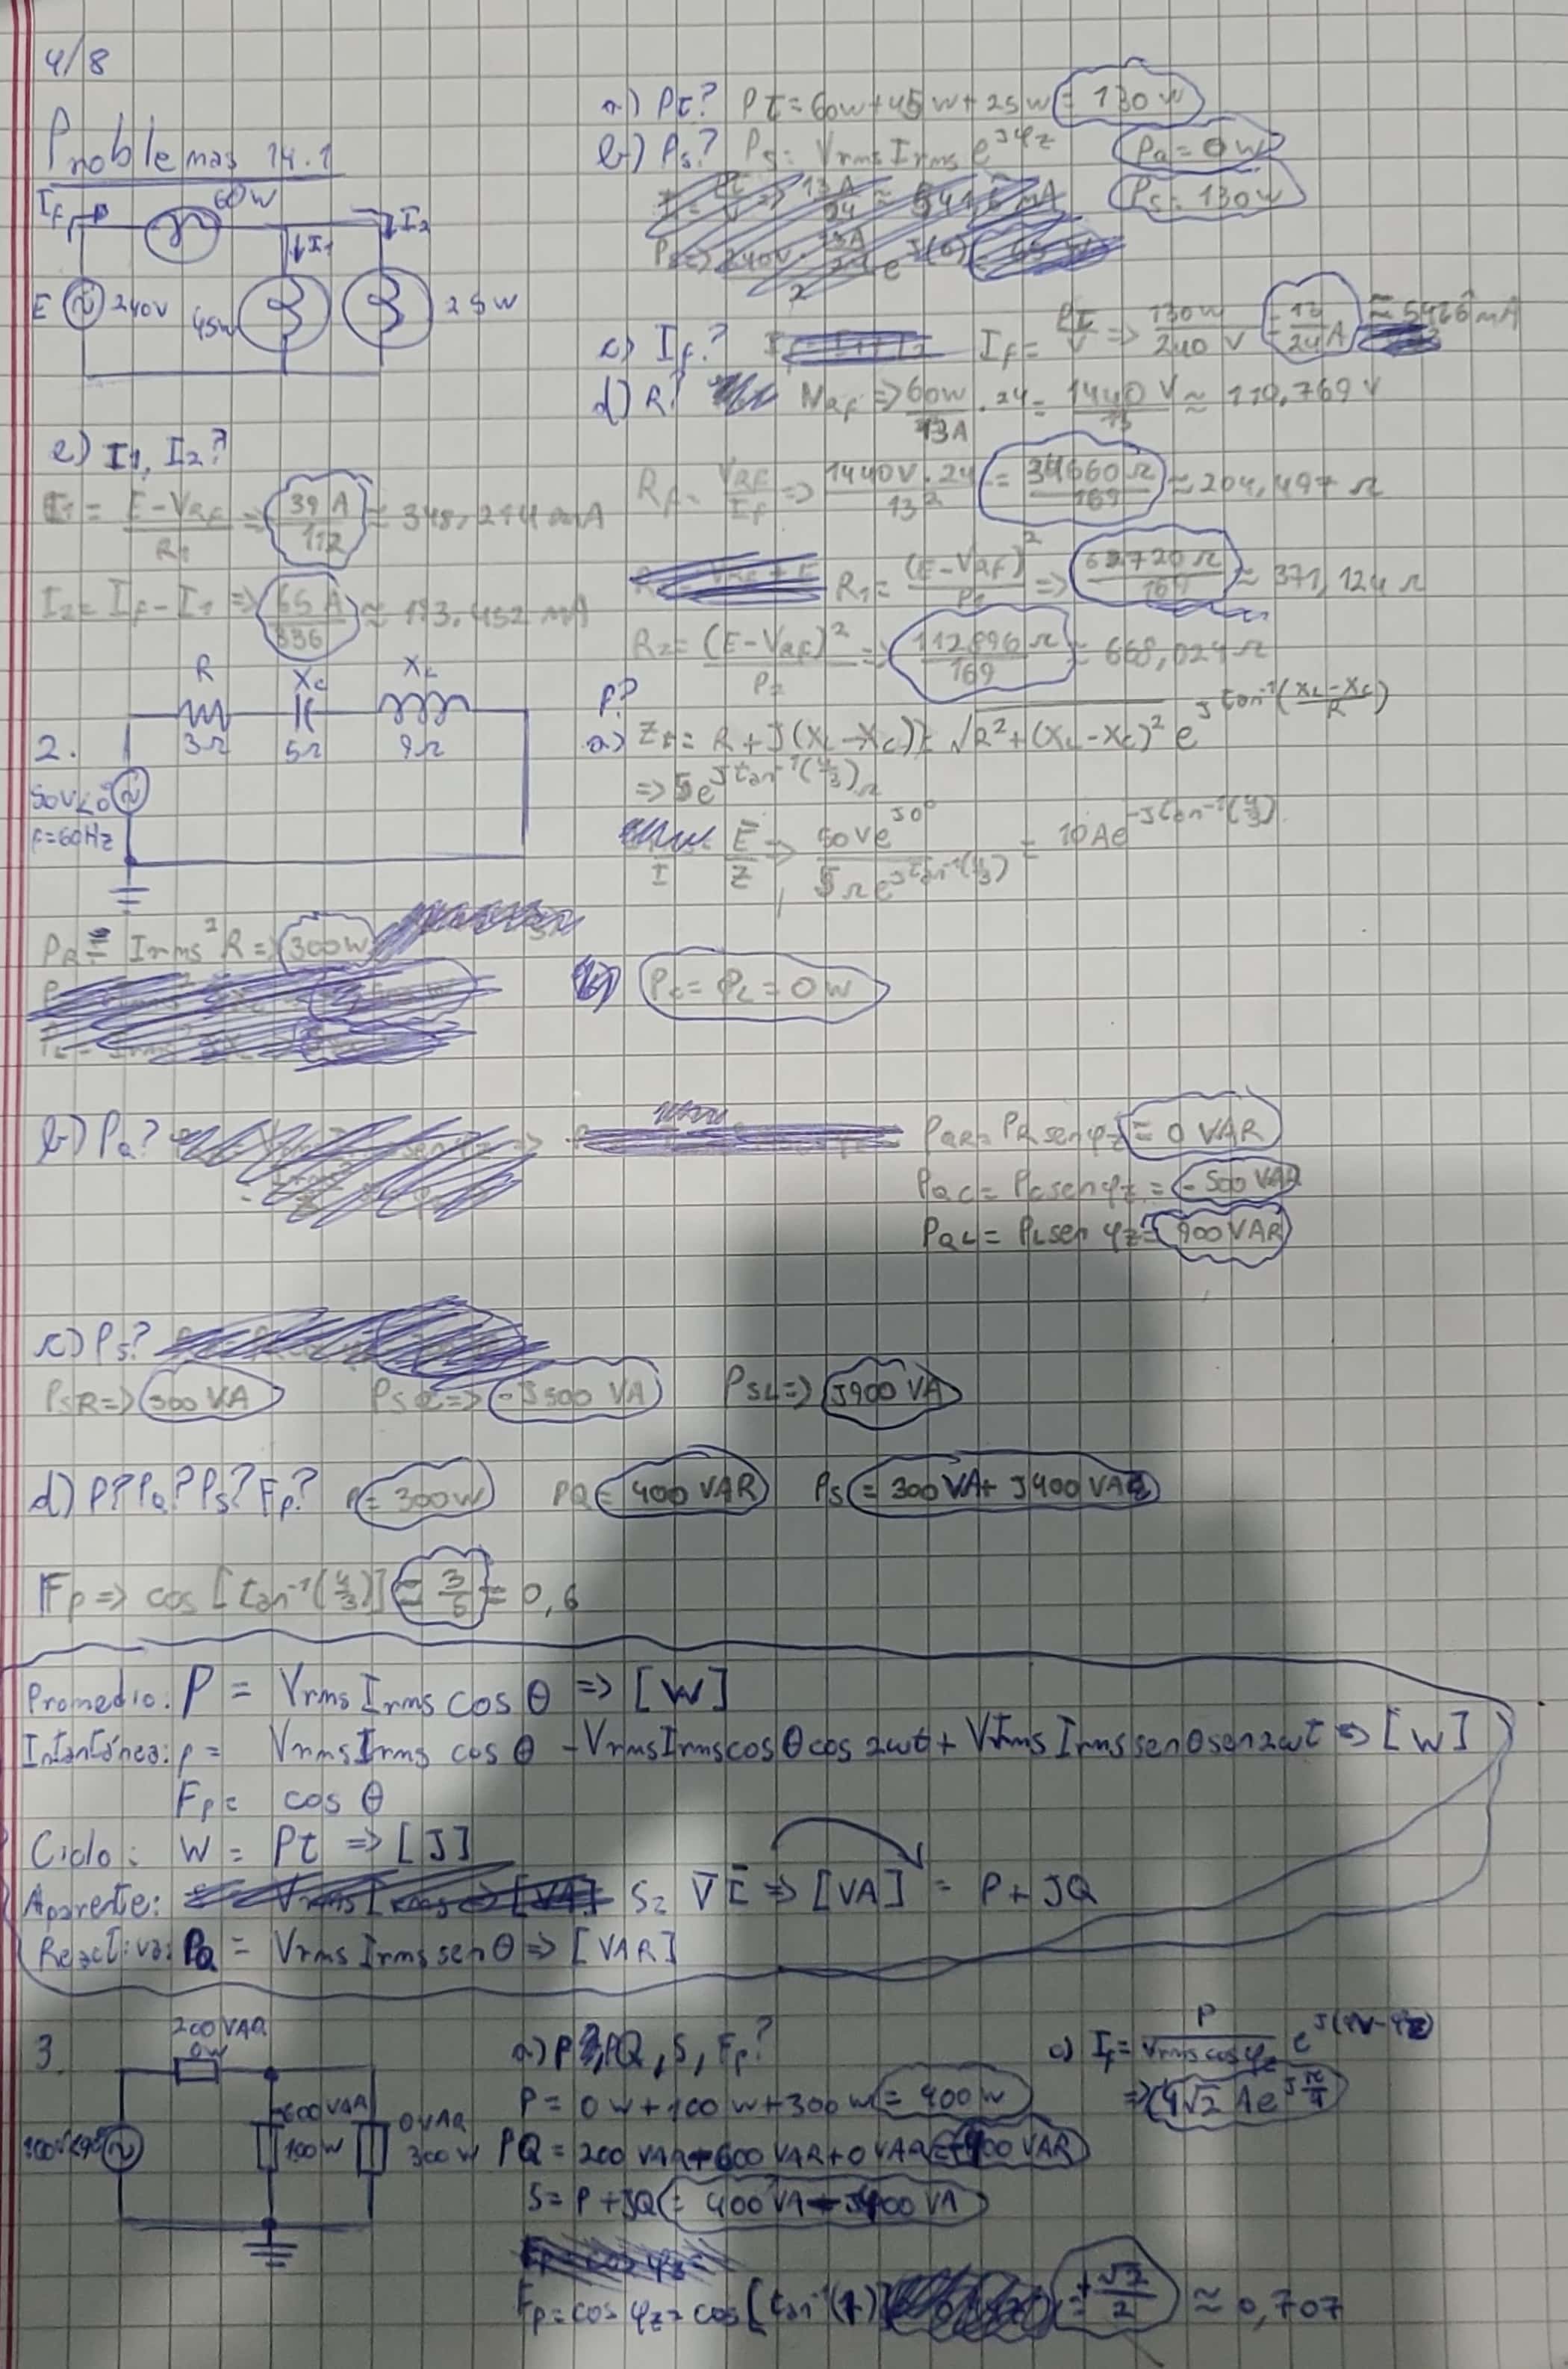 4/8
Problemas 14.1
If 60W I1 I2
E 240V 45W 25W
a) Pt? Pt = 60W + 45W + 25W = 130W
b) Ps? Ps = Vrms Irms e^Jφz Pa = 0W
Ps = 130W
c) If? If = Pt/V => 130W/240V = 13/24 A
d) R? VRF => 60W/13A · 24 = 1440/13 V ≈ 110,769 V
RF = VRF/IF => 1440V·24/13² = 34560Ω/169 ≈ 204,497 Ω
R1 = (E-VRF)²/P1 => 62720Ω/169 ≈ 371,124 Ω
R2 = (E-VRF)²/P2 => 112896Ω/169 ≈ 668,024 Ω
e) I1, I2?
I1 = E-VRF/R1 => 39A/112 ≈ 348,214 mA
I2 = IF - I1 => 65A/336 ≈ 193,452 mA
2.
R XC XL
3Ω 5Ω 9Ω
50V∠0°
f=60Hz
P?
a) Zt = R + J(XL-XC) = √R²+(XL-XC)² e^J tan⁻¹(XL-XC/R)
=> 5e^J tan⁻¹(4/3) Ω
I = E/Z => 50Ve^J0°/5Ωe^J tan⁻¹(4/3) = 10Ae^-J tan⁻¹(4/3)
PR = Irms² R => 300W
PC = PL = 0W
b) PQ?
PQR = PR sen φz = 0 VAR
PQC = PC sen φz = -500 VAR
PQL = PL sen φz = 900 VAR
c) Ps?
PSR => 300 VA PSC => -J500 VA PSL => J900 VA
d) P? PQ? PS? Fp? P = 300W PQ = 400 VAR PS = 300 VA + J400 VAR
Fp => cos [tan⁻¹(4/3)] = 3/5 = 0,6
Promedio: P = Vrms Irms cos θ => [W]
Intantánea: p = Vrms Irms cos θ - Vrms Irms cos θ cos 2wt + Vrms Irms sen θ sen 2wt => [W]
Fp = cos θ
Ciclo: W = Pt => [J]
Aparente: S = V̄ Ī => [VA] = P + JQ
Reactiva: PQ = Vrms Irms sen θ => [VAR]
3.
200 VAR
0W
600 VAR
100W
0 VAR
300W
a) P, PQ, S, Fp?
P = 0W + 100W + 300W = 400W
PQ = 200 VAR - 600 VAR + 0 VAR = 400 VAR
S = P + JQ = 400 VA - J400 VA
Fp = cos φz = cos [tan⁻¹(1)] = √2/2 ≈ 0,707
c) If = P/Vrms cos φz e^J(φv-φz)
=> 4√2 Ae^J π/4